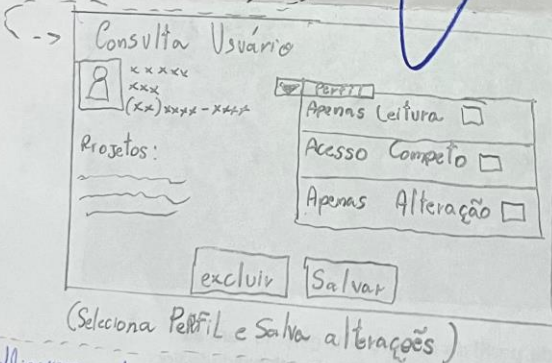 Consulta Usuário
xxxxx
xxx
(xx)xxxx-xxxx
Projetos:
Perfil
Apenas Leitura
Acesso Competo
Apenas Alteração
excluir
Salvar
(Seleciona Perfil e Salva alterações)